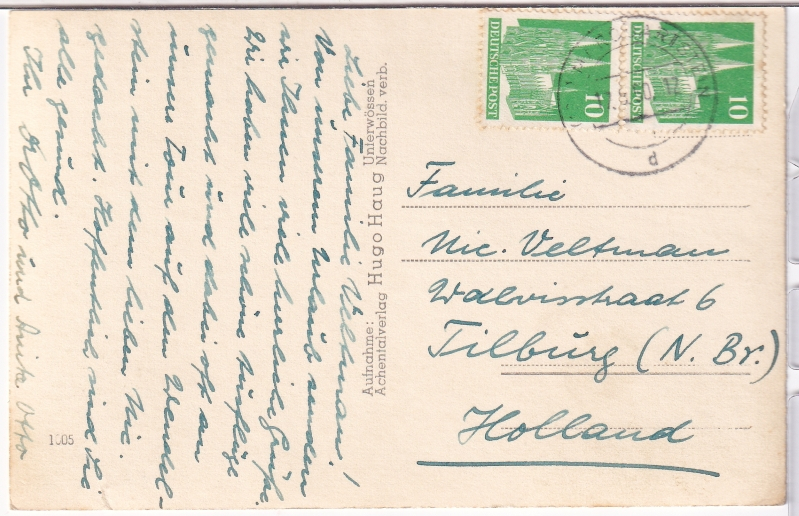 Liebe Familie Veltman!
Von unserem Urlaub senden
wir Ihnen viele herzliche Grüße.
Wir haben viele schöne Ausflüge
gemacht und dabei oft an
unsere Tour auf den Wendel-
stein mit dem lieben Nic.
gedacht. Hoffentlich sind Sie
alle gesund.
Ihr Otto und Anita Otto
1005
Aufnahme:
Achentalverlag Hugo Haug Unterwössen
Nachbild. verb.
DEUTSCHE POST
10
DEUTSCHE POST
10
Familie
Nic. Veltman
Walvisstraat 6
Tilburg (N. Br.)
Holland